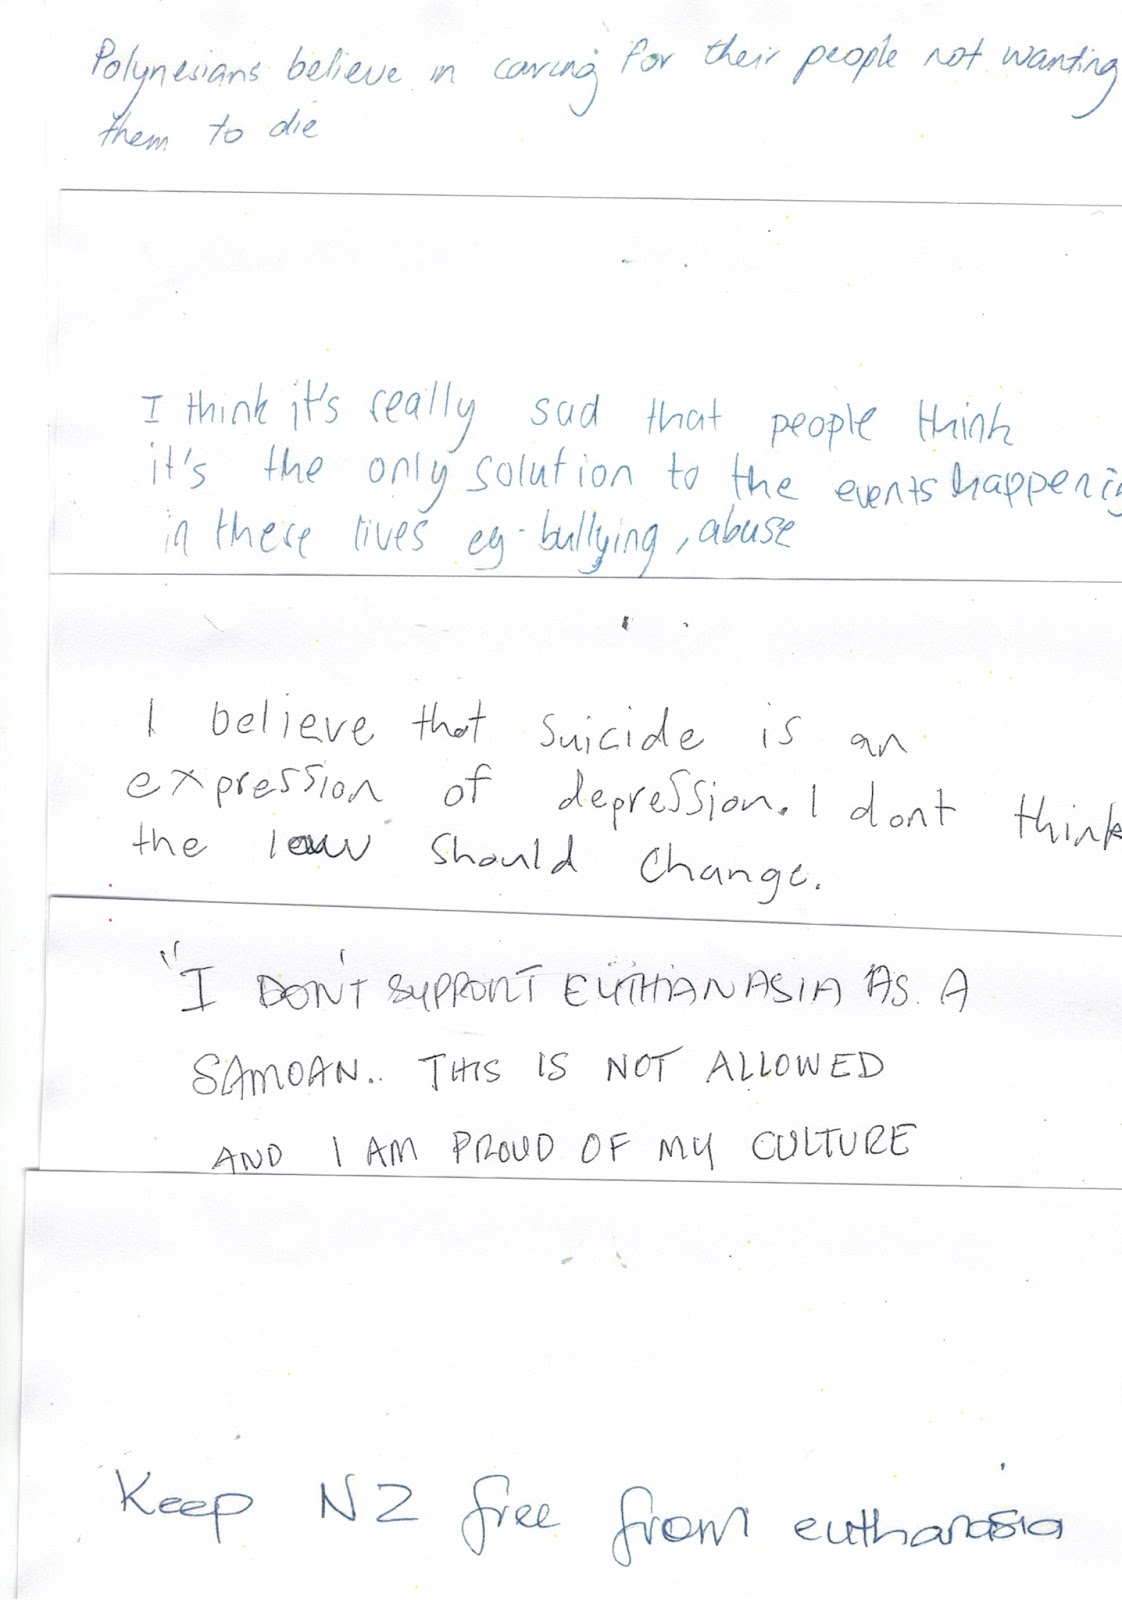 Polynesians believe in caring for their people not wanting
them to die
I think it's really sad that people think
it's the only solution to the events happenin
in these lives eg. bullying, abuse
I believe that suicide is an
expression of depression. I dont think
the law should change.
"I DON'T SUPPORT EUTHANASIA AS. A
SAMOAN.. THIS IS NOT ALLOWED
AND I AM PROUD OF MY CULTURE
Keep NZ free from euthanasia